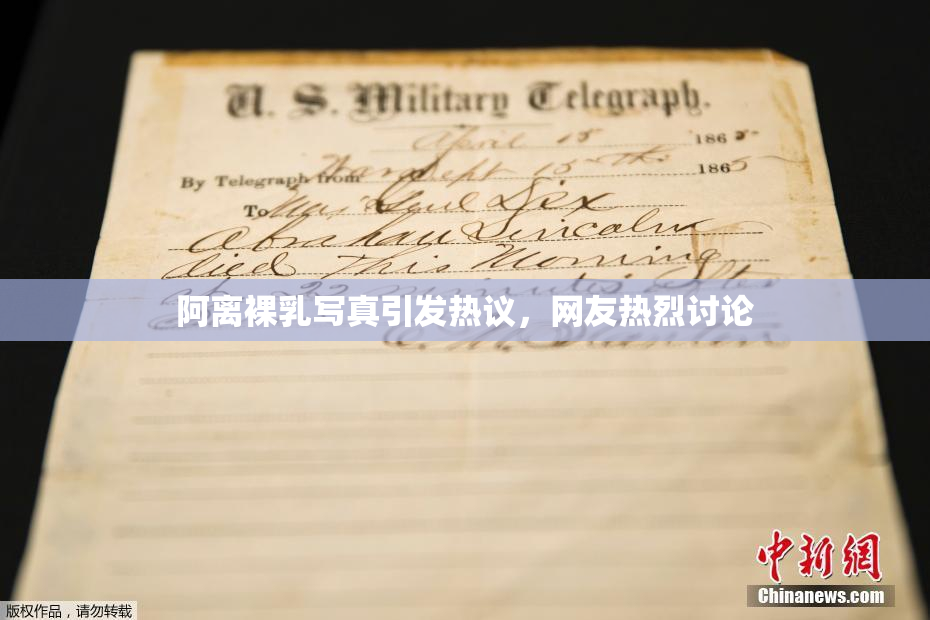 U. S. Military Telegraph.
April 15 1865
By Telegraph from War Dept 15th 1865
To Maj Genl Dix
Abraham Lincoln
died This Morning
at 22 minutes after
阿离裸乳写真引发热议，网友热烈讨论
中新网
Chinanews.com
版权作品，请勿转载